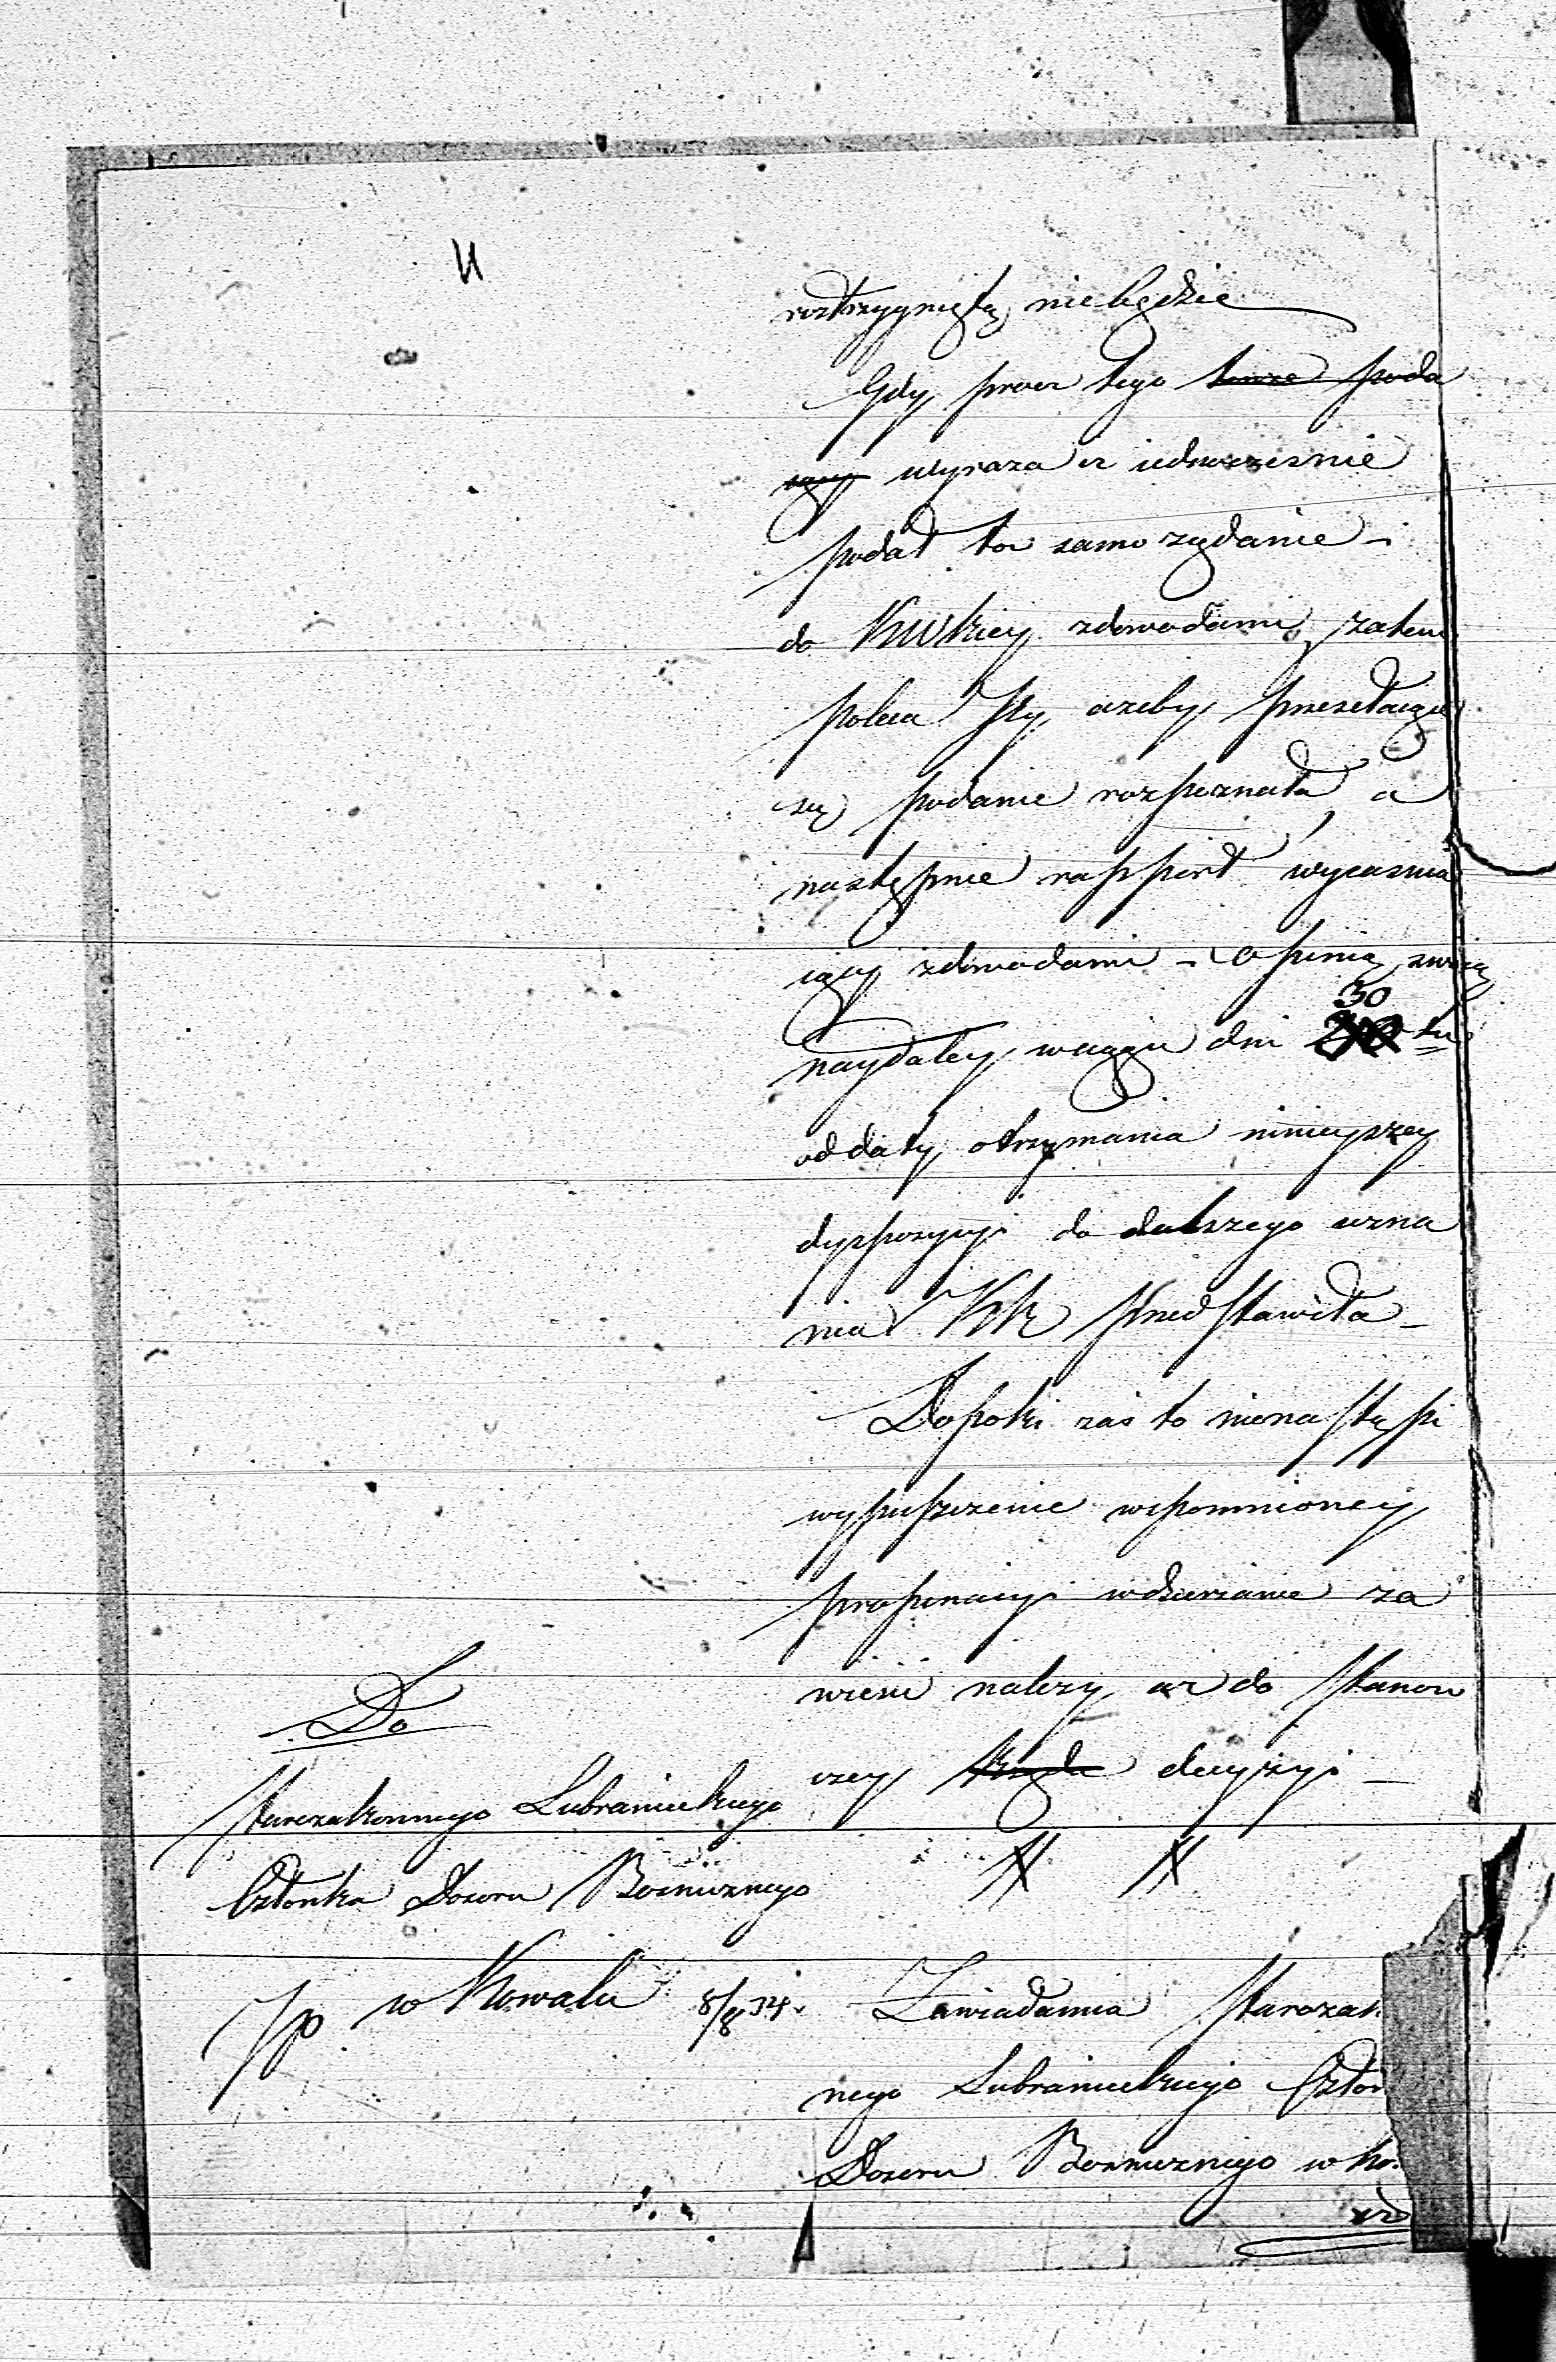 roztrzygniętą nie będzie
Gdy procz tego poda
wyraza iz iednoczesnie
podał to samo żądanie –
do KWkiey zdowodami, zatem
poleca Jey azeby
się podanie rozpoznała, a
następnie rapport wyiasnia
iący zdowodami – opinią swoią
naydaley wciągu dni 30 tu
od daty otrzymania ninieyszey
dyspozycyi do dalszego uzna
nia przedstawiła –
Dopoki zaś to nienastąpi
wypuszczenie wspomnioney
propinacyi wdzierzawe za
wiesić nalezy az do stanow
czey decyzyi –
Do
Starozakonnego Lubranieckiego
Członka Dozoru Boznicznego
w Kowalu 8/8 34.
Zawiadamia Starozak
nego Lubranieckiego Człon
Dozoru Boznicznego w Ko